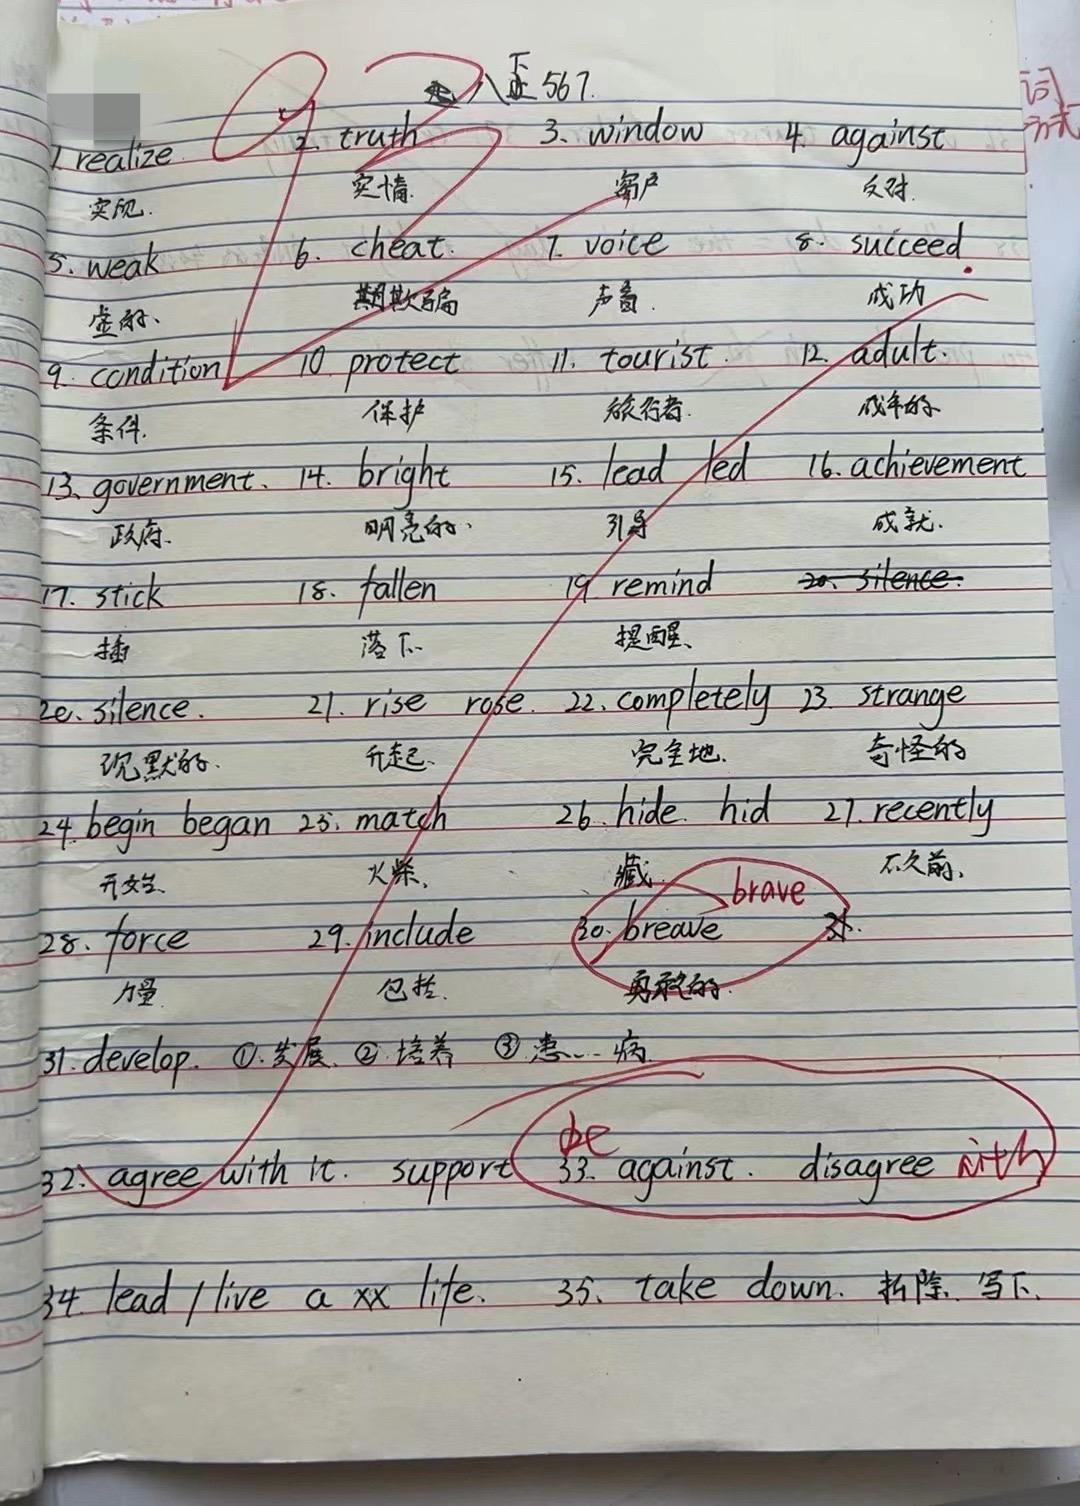 八下 567.
1. realize 2. truth 3. window 4. against
实现. 实情. 窗户 反对.
5. weak 6. cheat. 7. voice 8. succeed.
虚的、 欺骗 声音. 成功
9. condition 10 protect 11. tourist. 12. adult.
条件. 保护 旅行者. 成年的.
13、government. 14. bright 15. lead led 16. achievement
政府. 明亮的、 引导 成就.
17. stick 18. fallen 19 remind 20. silence.
插 落下. 提醒、
20. silence. 21. rise rose. 22. completely 23. strange
沉默的. 升起. 完全地. 奇怪的
24. begin began 25. match 26. hide. hid 27. recently
开始. 火柴、 藏. 不久前、
brave
28. force 29. include 30. breave
力量. 包括. 勇敢的.
31. develop. ①.发展. ②.培养 ③.患……病.
be
32、agree with it. support 33. against. disagree with
34. lead / live a xx life. 35. take down. 拆除. 写下.